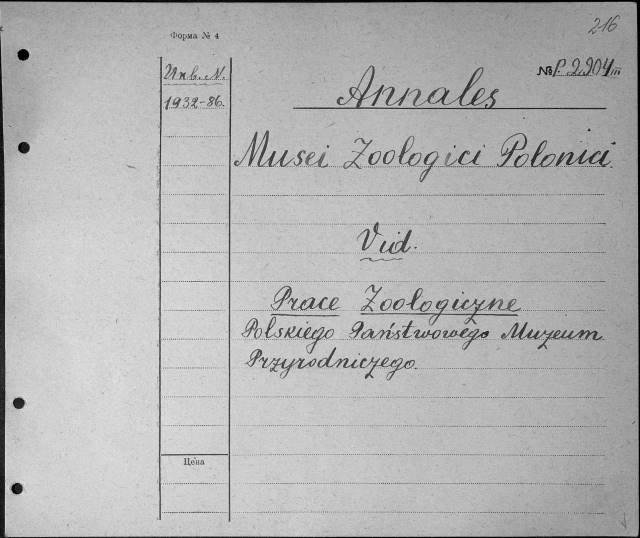 216
Форма № 4
Инв. N.
№ P. 2.204 III
1932-86.
Annales
Musei Zoologici Polonici.
Vid.
Prace Zoologiczne
Polskiego Państwowego Muzeum
Przyrodniczego.
Цена